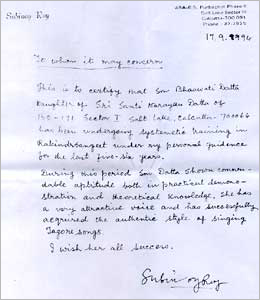 Subinoy Roy
Salt Lake Sector III
Calcutta-700 091
17.9.1996
To whom it may concern
This is to certify that Sm Bhaswati Datta
daughter of Sri Santi Narayan Datta of
Sector I Salt Lake, Calcutta-700064
has been undergoing systematic training in
Rabindrasangeet under my personal guidance
for the last five-six years.
During this period Sm Datta shown commen-
dable aptitude both in practical demons-
tration and theoretical knowledge. She has
a very attractive voice and has successfully
acquired the authentic style of singing
Tagore songs.
I wish her all success.
Subinoy Roy